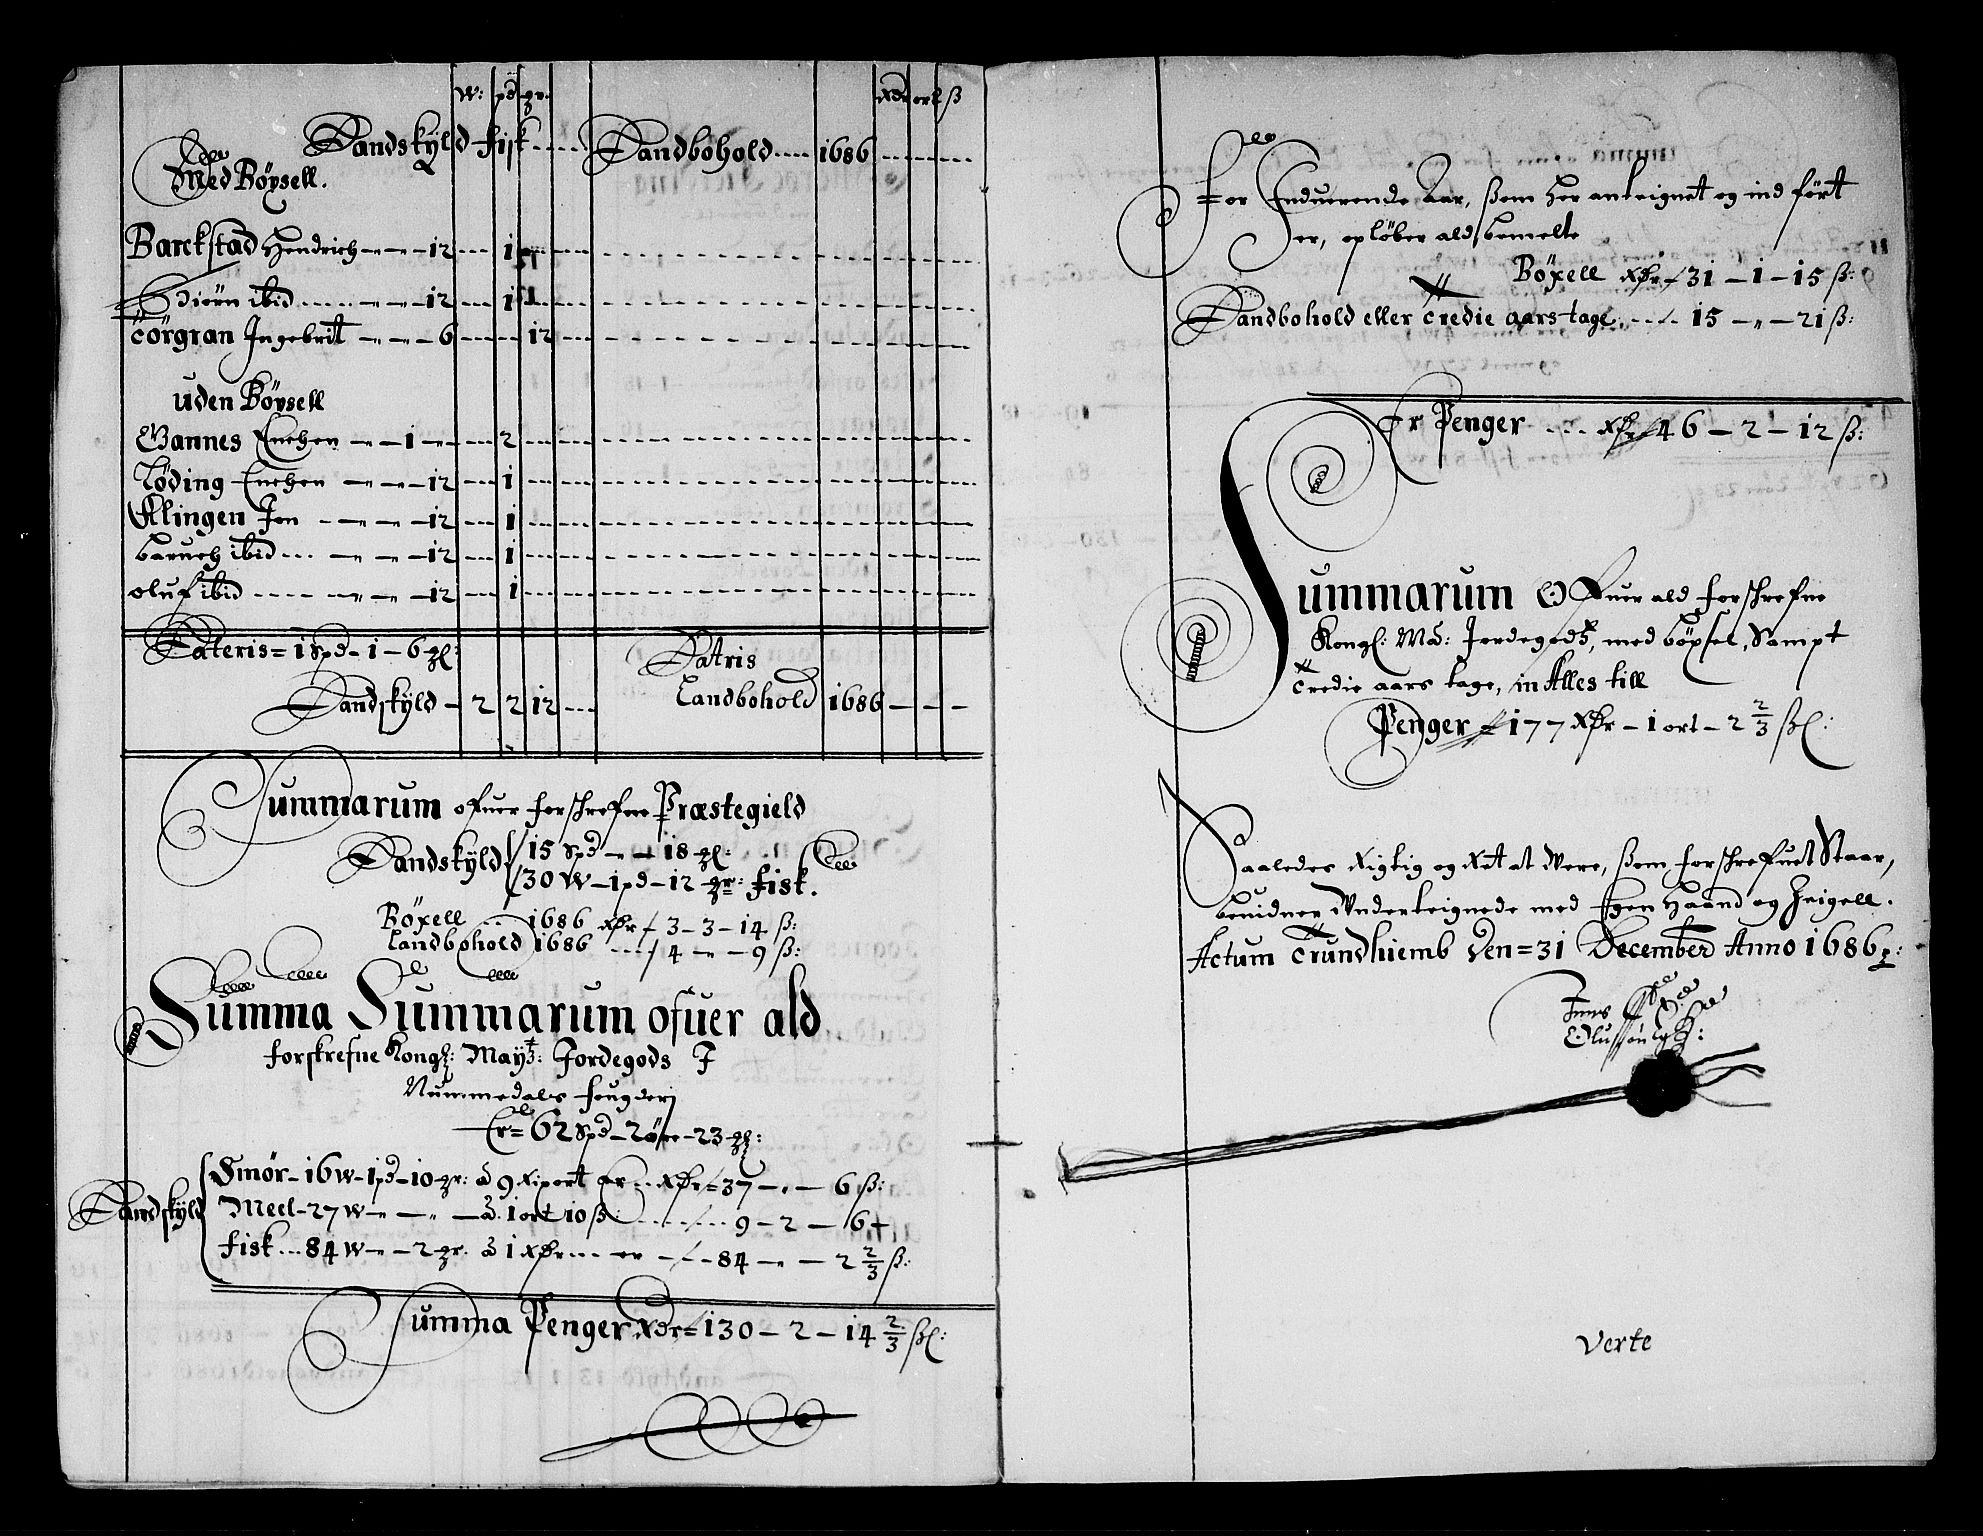 W: pd gr. Rdr ort ß
Landskyld fisk Landbohold 1686
Med Böysell.
Barckstad Hendrich - " - " - 12 1
Biörn ibid " - " - 12 1
Törgran Ingebrit - " - " - 6 12
uden Böysell
Wannes Enchen - " - 1 " 2
Töding Enchen - " - " - 12 1
Klingen Jon - " - " - 12 1
baruch ibid - " - " - 12 1
oluf ibid - " - " - 12 1
Lateris = 1 Spd - 1 - 6 gl:
Latris
Landskyld - 2 2 12 Landbohold 1686 - - -
Summarum ofuer forschrefne Præstegield
Landskyld 15 Spd - " - 18 gl:
30 W - 1 pd - 12 gr: fisk.
Böxell 1686 Rdr 3 - 3 - 14 ß:
Landbohold 1686 4 - " - 9 ß:
Summa Summarum ofuer ald
forskrefne Kongl: Mayts: Jordegods I
Nummedals fougderj
Er = 62 Spd - 2 öre - 23 gl:
Landskyld
Smör - 16 W - 1 pd - 10 gr: â 9 Rixort er Rdr = 37 - " - 6 ß:
Meel - 27 W - " - " - â 1 ort 10 ß: 9 - 2 - 6 +
fisk 84 W - " - 2 gr. â 1 Rdr er 84 - " - 2 2/3 ß:
Summa Penger Rdr = 130 - 2 - 14 2/3 ßl:
For Induerende Aar, ßom her anteignet og ind fört
er, opløber ald bemelte
Böxell Rdr 31 - 1 - 15 ß:
Landbohold eller Tredie aarstage 15 - " - 21 ß:
Er Penger Rdr 46 - 2 - 12 ß:
Summarum Ofuer ald forschrefne
Kongl: Mâ: Jordegods, med böxsel, Sampt
Tredie aars tage, in Alles till
Penger 177 Rdr - 1 ort - 2 2/3 ßl:
Saaledes Rigtig og Ret at Were, ßom forschrefuet Staar,
beuidner Underteignede med Egen Haand og Zeigell.
Actum Trundhiemb Den = 31 December Anno 1686
Verte